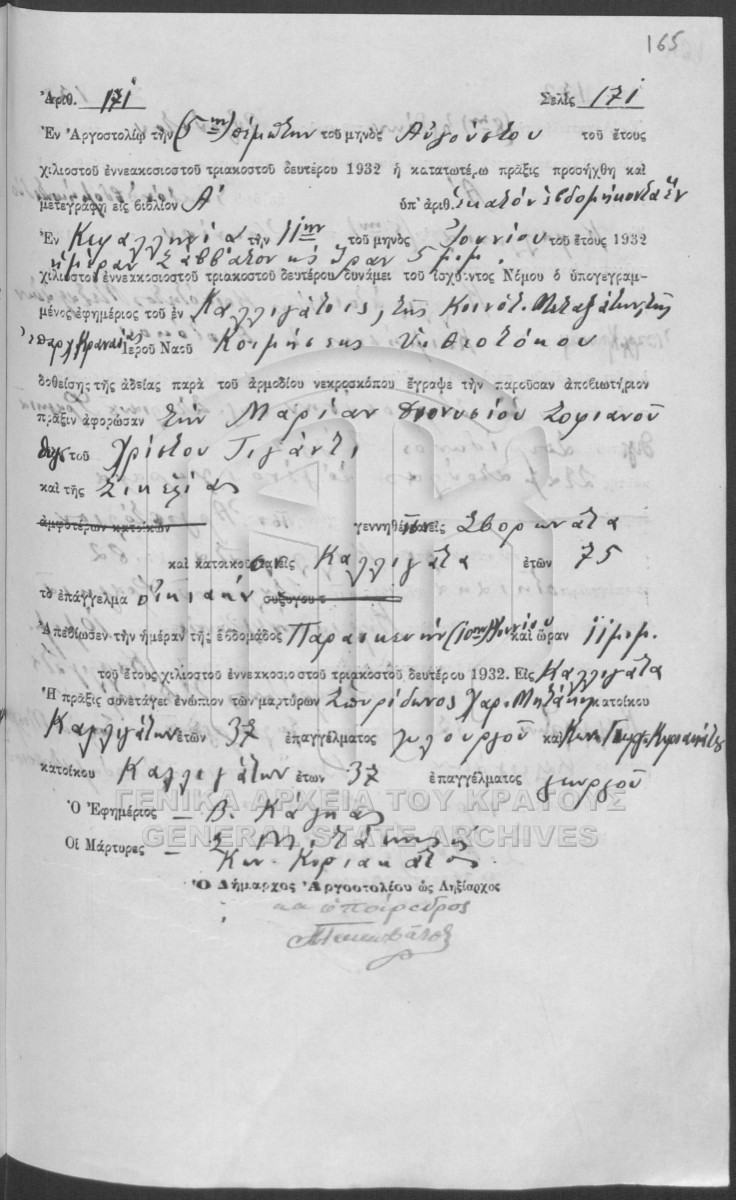 165
Ἀριθ. 171 Σελὶς 171
Ἐν Ἀργοστολίῳ τὴν (5ην) πέμπτην τοῦ μηνὸς Αὐγούστου τοῦ ἔτους
χιλιοστοῦ ἐννεακοσιοστοῦ τριακοστοῦ δευτέρου 1932 ἡ κατατωτέρω πρᾶξις προσήχθη καὶ
μετεγράφη εἰς βιβλίον Α' ὑπ' ἀριθ. ἑκατὸν ἑβδομήκοντα ἕν
Ἐν Κεφαλληνίᾳ τὴν 11ην τοῦ μηνὸς Ἰουνίου τοῦ ἔτους 1932
ἡμέραν Σάββατον κ ὥραν 5 μ.μ.
χιλιοστοῦ ἐννεακοσιοστοῦ τριακοστοῦ δευτέρου δυνάμει τοῦ ἰσχύοντος Νόμου ὁ ὑπογεγραμ-
μένος ἐφημέριος τοῦ ἐν Καλλιγάτοις, τῆς Κοινότ. Μεταξάτων, τῆς
ἐπαρχ. Κραναίας Ἱεροῦ Ναοῦ Κοιμήσεως Θεοτόκου
δοθείσης τῆς ἀδείας παρὰ τοῦ ἁρμοδίου νεκροσκόπου ἔγραψε τὴν παροῦσαν ἀποβιωτήριον
πρᾶξιν ἀφορῶσαν τὴν Μαρίαν Διονυσίου Σοφιανοῦ
θυγ. τοῦ Χρίστου Γιγάντι
καὶ τῆς Σικελίας
ἀμφοτέρων κατοίκων γεννηθεῖσαν εἰς Σβορωνᾶτα
καὶ κατοικοῦσα εἰς Καλλιγᾶτα ἐτῶν 75
τὸ ἐπάγγελμα οἰκιακήν συζύγου
Ἀπεβίωσεν τὴν ἡμέραν τῆς ἑβδομάδος Παρασκευήν (10ην) Ἰουνίου καὶ ὥραν 11 μ.μ.
τοῦ ἔτους χιλιοστοῦ ἐννεακοσιοστοῦ τριακοστοῦ δευτέρου 1932. Εἰς Καλλιγᾶτα
Ἡ πρᾶξις συνετάγει ἐνώπιον τῶν μαρτύρων Σπυρίδωνος Χαρ. Μητάκη κατοίκου
Καλλιγάτων ἐτῶν 37 ἐπαγγέλματος καὶ Κων. Γεωργ. Κυριακάτου
κατοίκου Καλλιγάτων ἐτων 37 ἐπαγγέλματος γεωργοῦ
Ὁ Ἐφημέριος — Β. Κάγκας
Οἱ Μάρτυρες — Σ. Μητάκης
Κων. Κυριακάτος
Ὁ Δήμαρχος Ἀργοστολίου ὡς Ληξίαρχος
ὁ πάρεδρος
ΓΕΝΙΚΑ ΑΡΧΕΙΑ ΤΟΥ ΚΡΑΤΟΥΣ
GENERAL STATE ARCHIVES